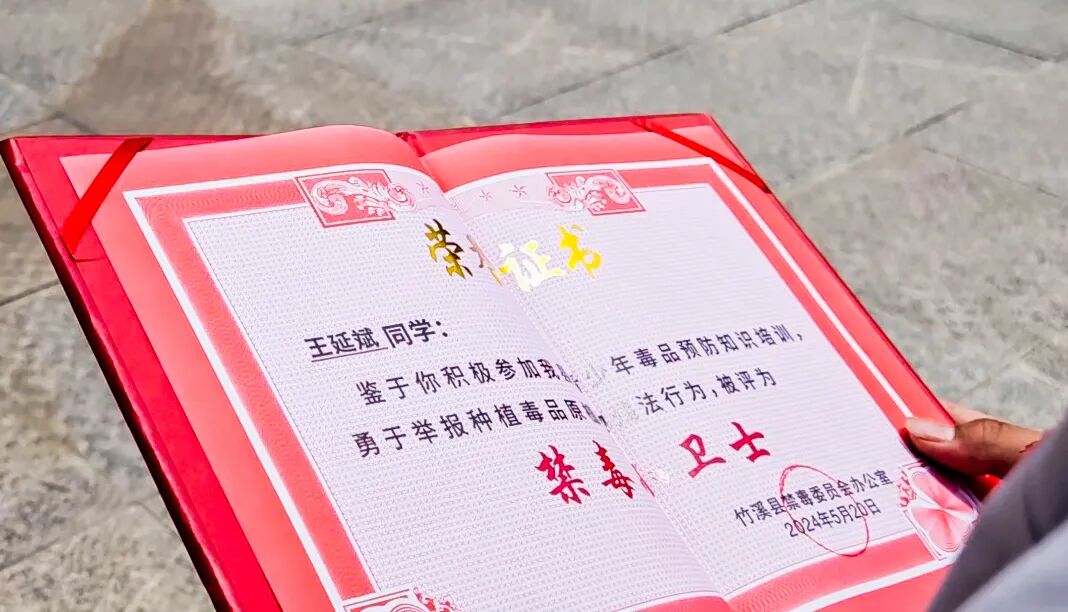 荣 证书
王延斌 同学：
鉴于你积极参加我 少年毒品预防知识培训，
勇于举报种植毒品原 法行为，被评为
禁毒 卫士
竹溪县禁毒委员会办公室
2024年5月20日